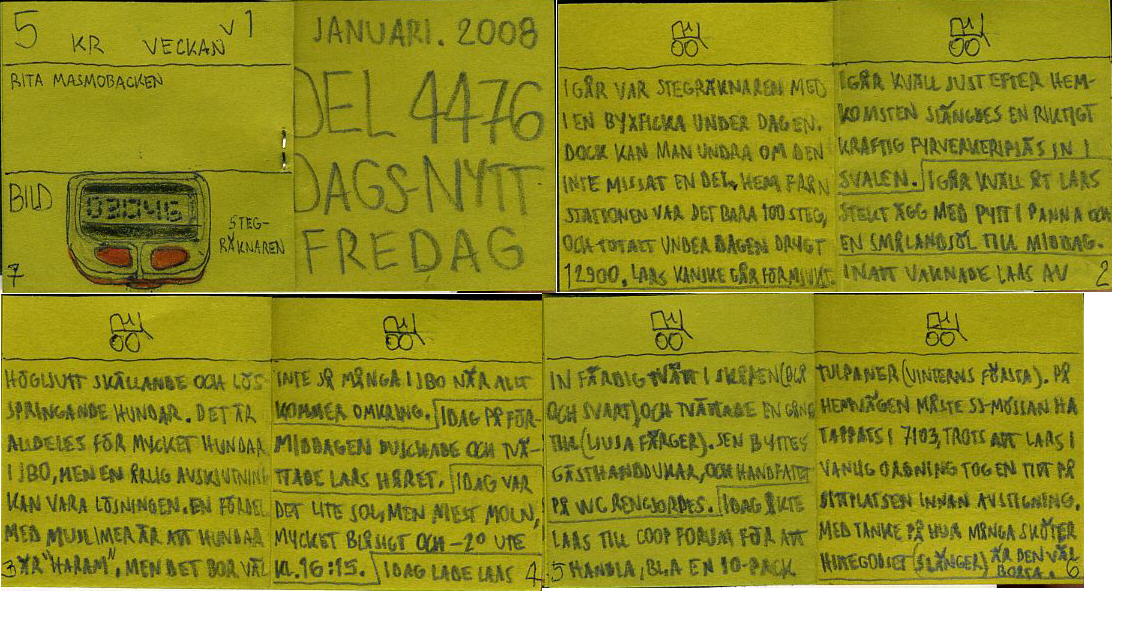 5 KR VECKAN V1
RITA MASMOBACKEN
BILD
03:0446
STEG-
RÄKNAREN
7
JANUARI. 2008
DEL 4476
DAGS-NYTT
FREDAG
IGÅR VAR STEGRÄKNAREN MED
I EN BYXFICKA UNDER DAGEN.
DOCK KAN MAN UNDRA OM DEN
INTE MISSAT EN DEL, HEM FRÅN
STATIONEN VAR DET BARA 100 STEG,
OCH TOTALT UNDER DAGEN DRYGT
12900. LARS KANSKE GÅR FÖR MJUKT.
IGÅR KVÄLL JUST EFTER HEM-
KOMSTEN SLÄNGDES EN RIKTIGT
KRAFTIG FYRVERKERIPJÄS IN I
SVALEN. IGÅR KVÄLL ÅT LARS
STEKT ÄGG MED PYTT I PANNA OCH
EN SMÅLANDSÖL TILL MIDDAG.
INATT VAKNADE LARS AV
2
HÖGLJUTT SKÄLLANDE OCH LÖS-
SPRINGANDE HUNDAR. DET ÄR
ALLDELES FÖR MYCKET HUNDAR
I JBO, MEN EN ÅRLIG AVSKJUTNING
KAN VARA LÖSNINGEN. EN FÖRDEL
MED MUSLIMER ÄR ATT HUNDAR
ÄR "HARAM", MEN DET BOR VÄL
3
INTE SÅ MÅNGA I JBO NÄR ALLT
KOMMER OMKRING. IDAG PÅ FÖR-
MIDDAGEN DUSCHADE OCH TVÄ-
TTADE LARS HÅRET. IDAG VAR
DET LITE SOL, MEN MEST MOLN,
MYCKET BLÅSIGT OCH -2° UTE
KL. 16:15. IDAG LADE LARS
4
IN FÄRDIG TVÄTT I SKÅPEN (BLÅ
OCH SVART) OCH TVÄTTADE EN GÅNG
TILL (LJUSA FÄRGER). SEN BYTTES
GÄSTHANDDUKAR, OCH HANDFATET
PÅ WC RENGJORDES. IDAG ÅKTE
LARS TILL COOP FORUM FÖR ATT
HANDLA, BL.A EN 10-PACK
5
TULPANER (VINTERNS FÖRSTA). PÅ
HEMVÄGEN MÅSTE SJ-MÖSSAN HA
TAPPATS I 7103, TROTS ATT LARS I
VANLIG ORDNING TOG EN TITT PÅ
SITTPLATSEN INNAN AVSTIGNING.
MED TANKE PÅ HUR MÅNGA SKÖTER
HITTEGODSET (SLÄNGER) ÄR DEN VÄL
BORTA.
6